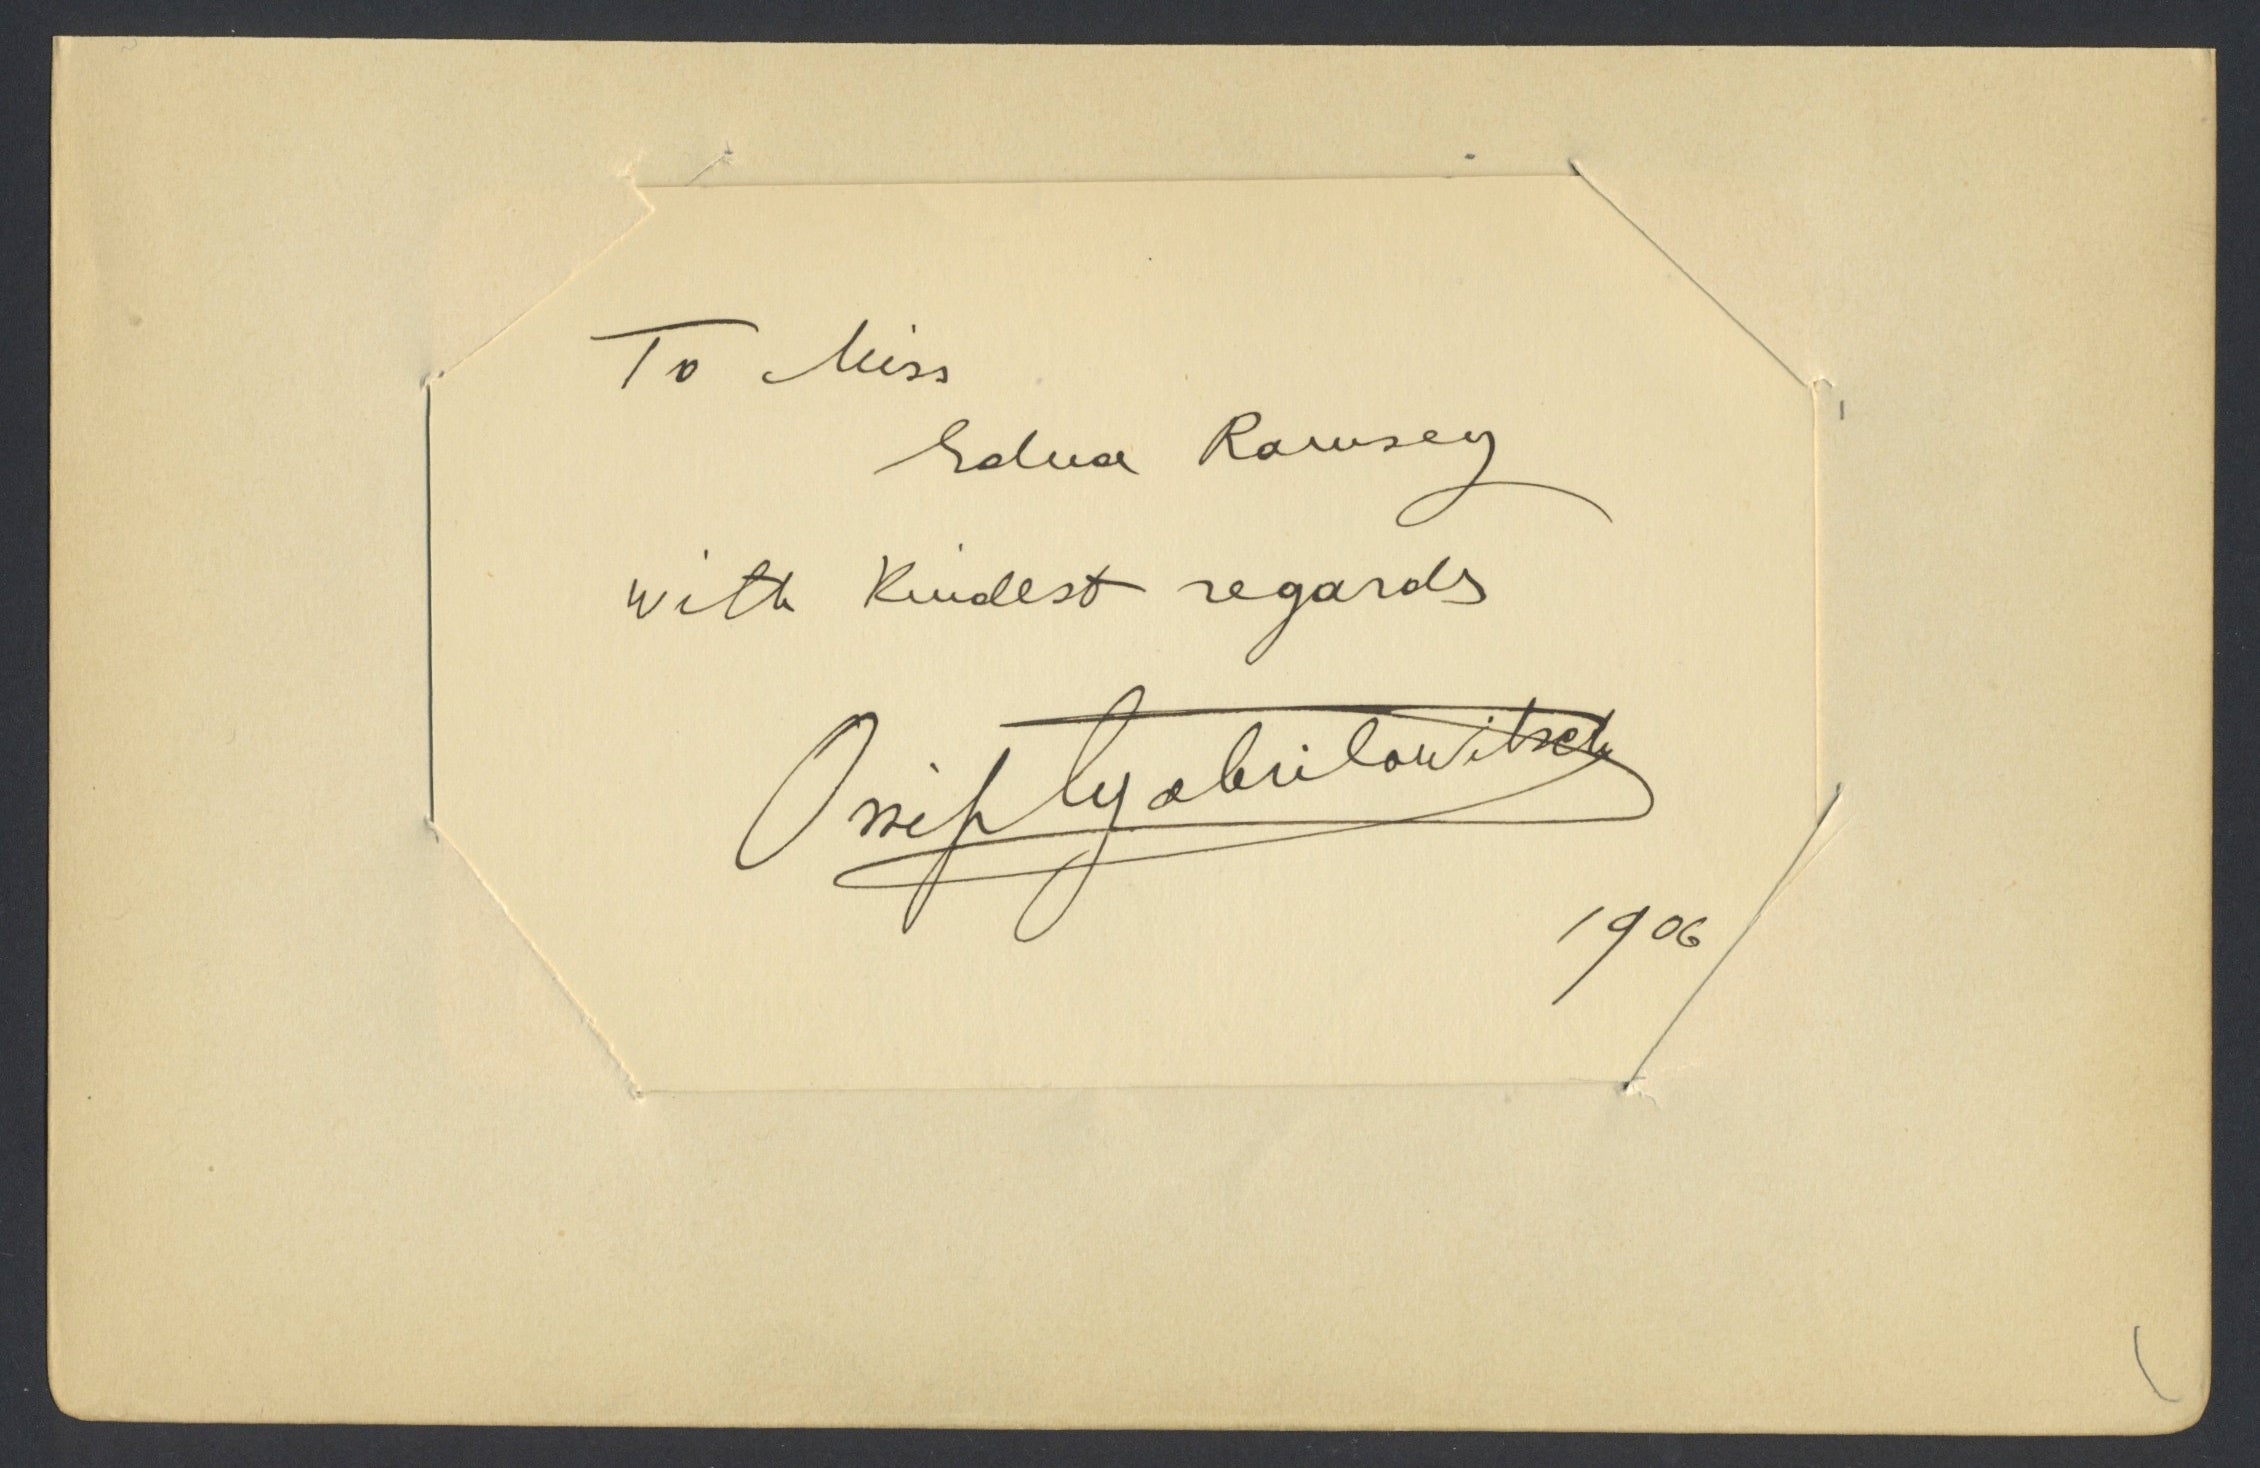 To Miss
Edna Ramsey
with kindest regards
Ossip Gabrilowitsch
1906